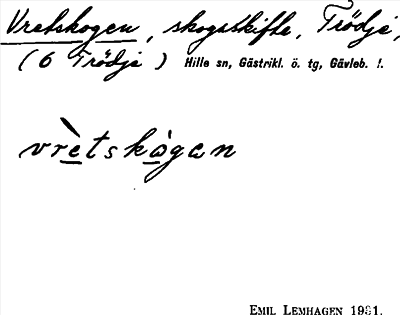 Vretskogen, skogsskifte, Trödje,
(6 Trödje) Hille sn, Gästrikl. ö. tg, Gävleb. l.
vrètskògan
EMIL LEMHAGEN 1931.